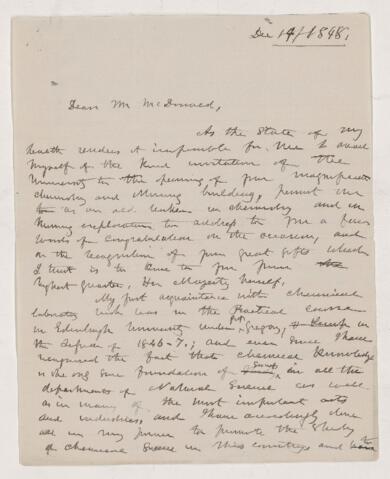 Dec 14/1898.
Dear Mr McDonald,
As the State of my
health renders it impossible for me to avail
myself of the kind invitation of the
University to the opening of your magnificent
chemistry and Mining building, permit me
as an old worker in chemistry and in
Mining exploration to address to you a few
words of congratulation on the occasion, and
on the recognition of your great gifts which
I trust is to come to you from
highest quarter, Her Majesty herself.
My first acquaintance with chemical
laboratory work was in the Practical course
in Edinburgh University under Gregory,
the of 1846-7; and ever since I have
recognised the fact that chemical knowledge
is the only sure foundation of in all the
departments of Natural Science as well
as in many of the most important arts
and industries, and I have accordingly done
all in my power to promote the Study
of chemical Science in this country, and to